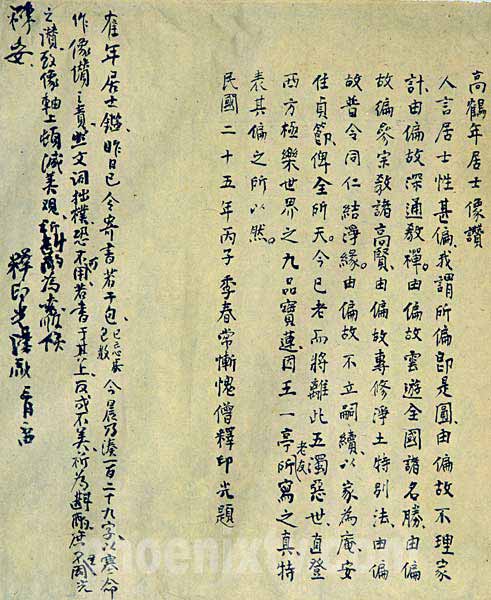 高鶴年居士像讚
人言居士性甚偏，我謂所偏即是圓。由偏故不理家
計，由偏故深通教禪。由偏故雲遊全國諸名勝，由偏
故徧參宗教諸高賢。由偏故專修淨土特別法，由偏
故普令同仁結淨緣。由偏故不立嗣續，以家為庵，安
住貞節，俾全所天。今已老而將離此五濁惡世，直登
西方極樂世界之九品寶蓮。因王一亭老友所寫之真，特
表其偏之所以然。
民國二十五年丙子季春常慚愧僧釋印光題
隺年居士鑑，昨日已令寄書若干包，今晨乃湊一百二十九字，以塞命
作像讚之責。然文詞拙樸，恐不可用。若書于其上，反成不美，祈為斟酌
之讚，致像軸上頓減美觀，祈
禅安
釋印光
phoenixtv.com